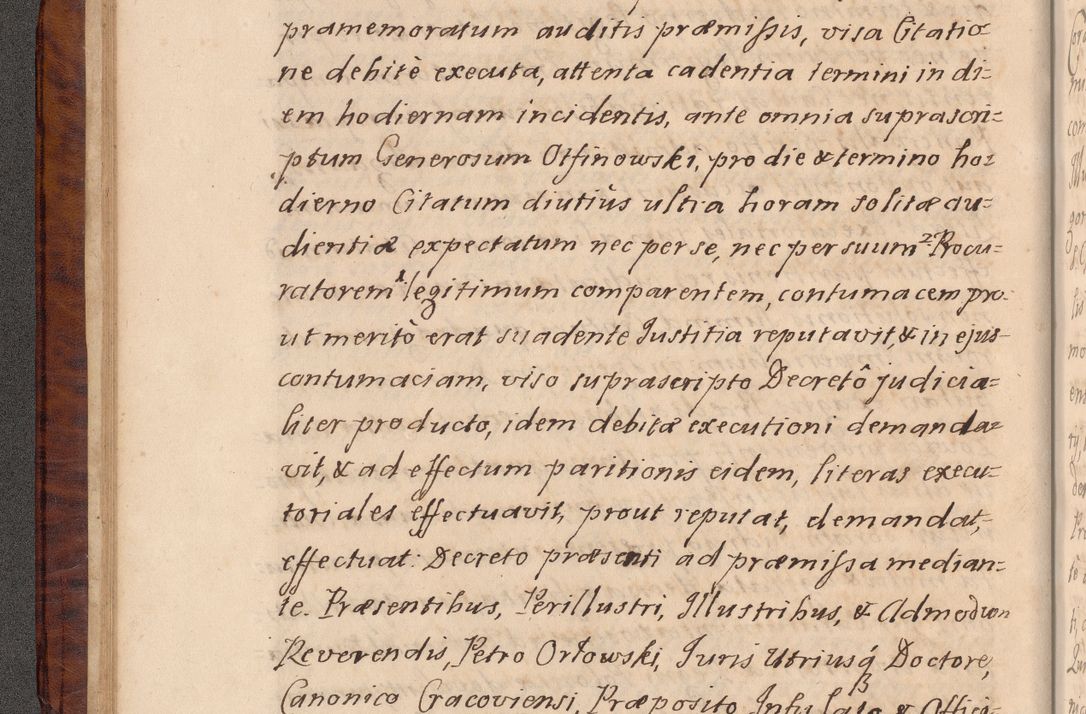 præmemoratum auditis præmissis, visa Citatio=
ne debitè executa, attenta cadentia termini in di=
em hodiernam incidentis, ante omnia suprascri=
ptum Generosum Otfinowski, pro die & termino ho=
dierno Citatum diutiùs ultia horam solitæ au=
dientiæ expectatum nec per se, nec per suum ² Procu=
ratorem ¹ legitimum comparentem, contumacem pro=
ut meritò erat suadente Justitia reputavit, & in ejus
contumaciam, viso suprascripto Decretô judicia=
liter producto, idem debitæ executioni demanda=
vit, & ad effectum paritionis eidem, literas execu=
toriales effectuavit, prout reputat, demandat,
effectuat: Decreto præsenti ad præmissa median=
te. Præsentibus, Perillustri, Illustribus, & Admodum
Reverendis, Petro Orłowski, Juris Utriusq́ Doctore,
Canonico Cracoviensi, Præposito Infulato & Offici=